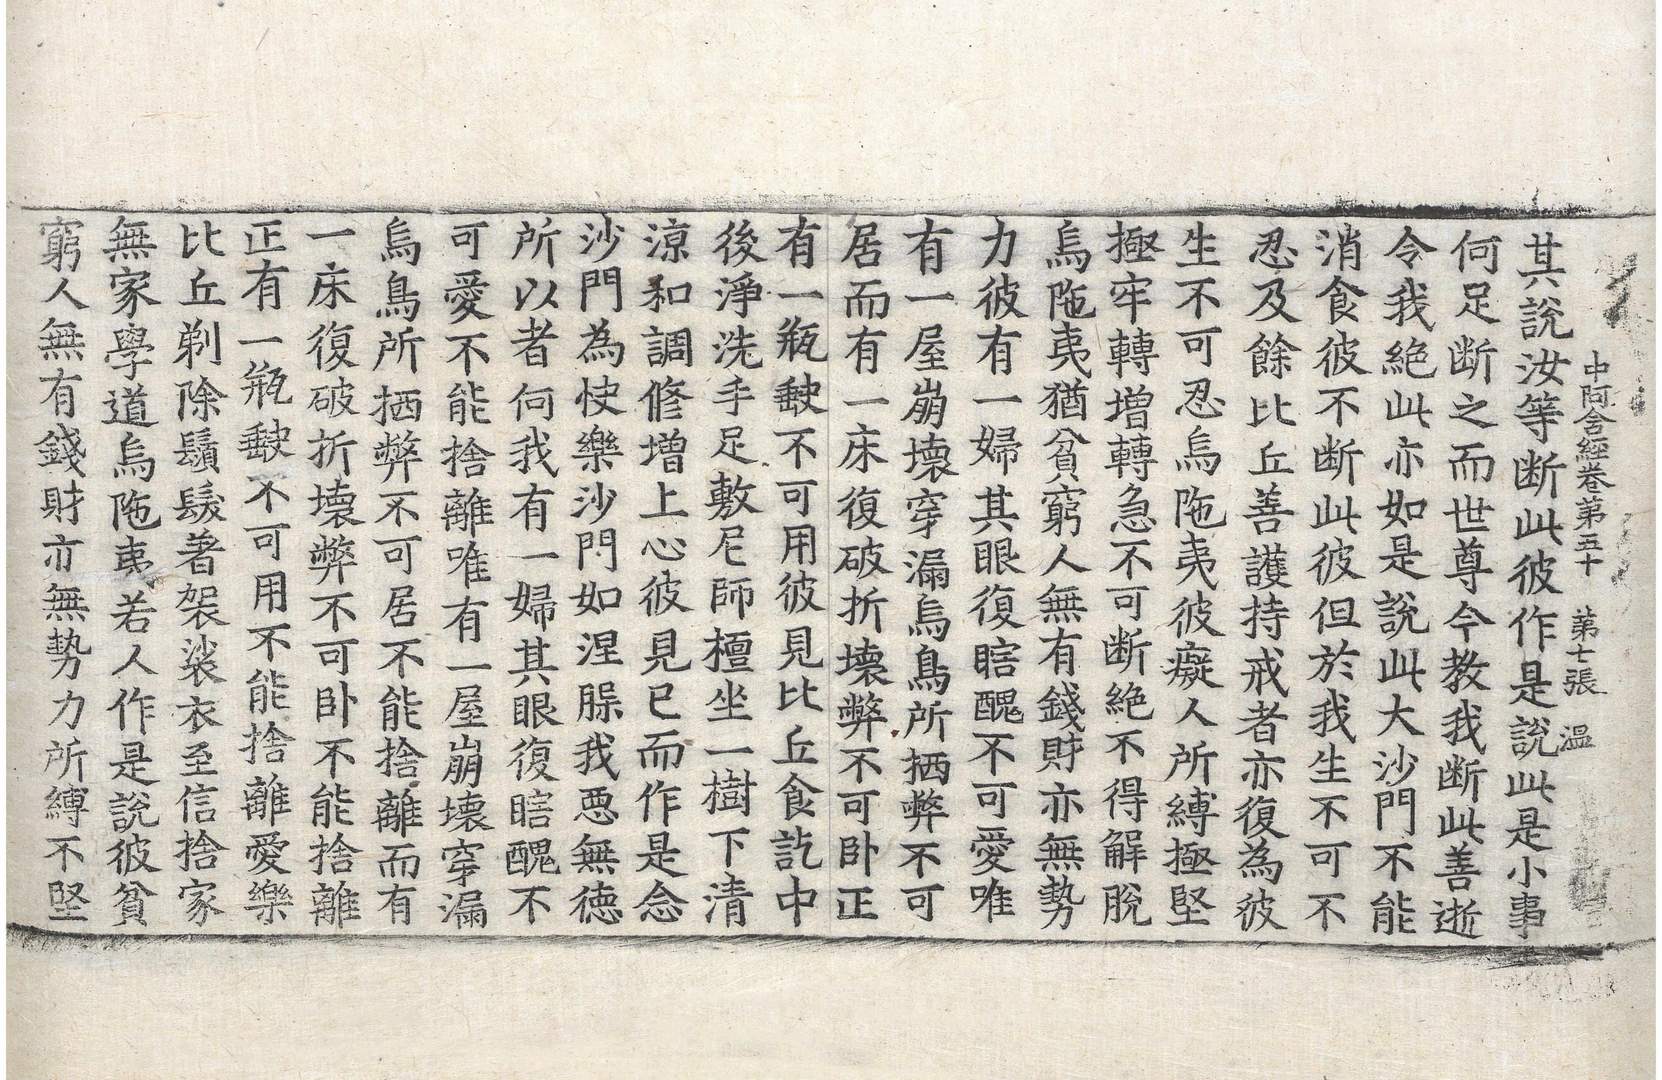 中阿含經卷第五十 第七張 温
其說汝等断此彼作是說此是小事
何足断之而世尊今教我断此善逝
令我絶此亦如是說此大沙門不能
消食彼不断此彼但於我生不可不
忍及餘比丘善護持戒者亦復為彼
生不可忍烏陁夷彼癡人所縛極堅
極牢轉增轉急不可断絶不得解脫
烏陁夷猶貧窮人無有錢財亦無勢
力彼有一婦其眼復瞎醜不可愛唯
有一屋崩壞穿漏烏鳥所栖弊不可
居而有一床復破折壞弊不可卧正
有一瓶𡙇不可用彼見比丘食訖中
後淨洗手足敷尼師檀坐一樹下清
涼和調修增上心彼見已而作是念
沙門為快樂沙門如涅腬我惡無徳
所以者何我有一婦其眼復瞎醜不
可愛不能捨離唯有一屋崩壞穿漏
烏鳥所栖弊不可居不能捨離而有
一床復破折壞弊不可卧不能捨離
正有一瓶𡙇不可用不能捨離愛樂
比丘剃除鬚髮著袈裟衣至信捨家
無家學道烏陁夷若人作是說彼貧
窮人無有錢財亦無勢力所縛不堅